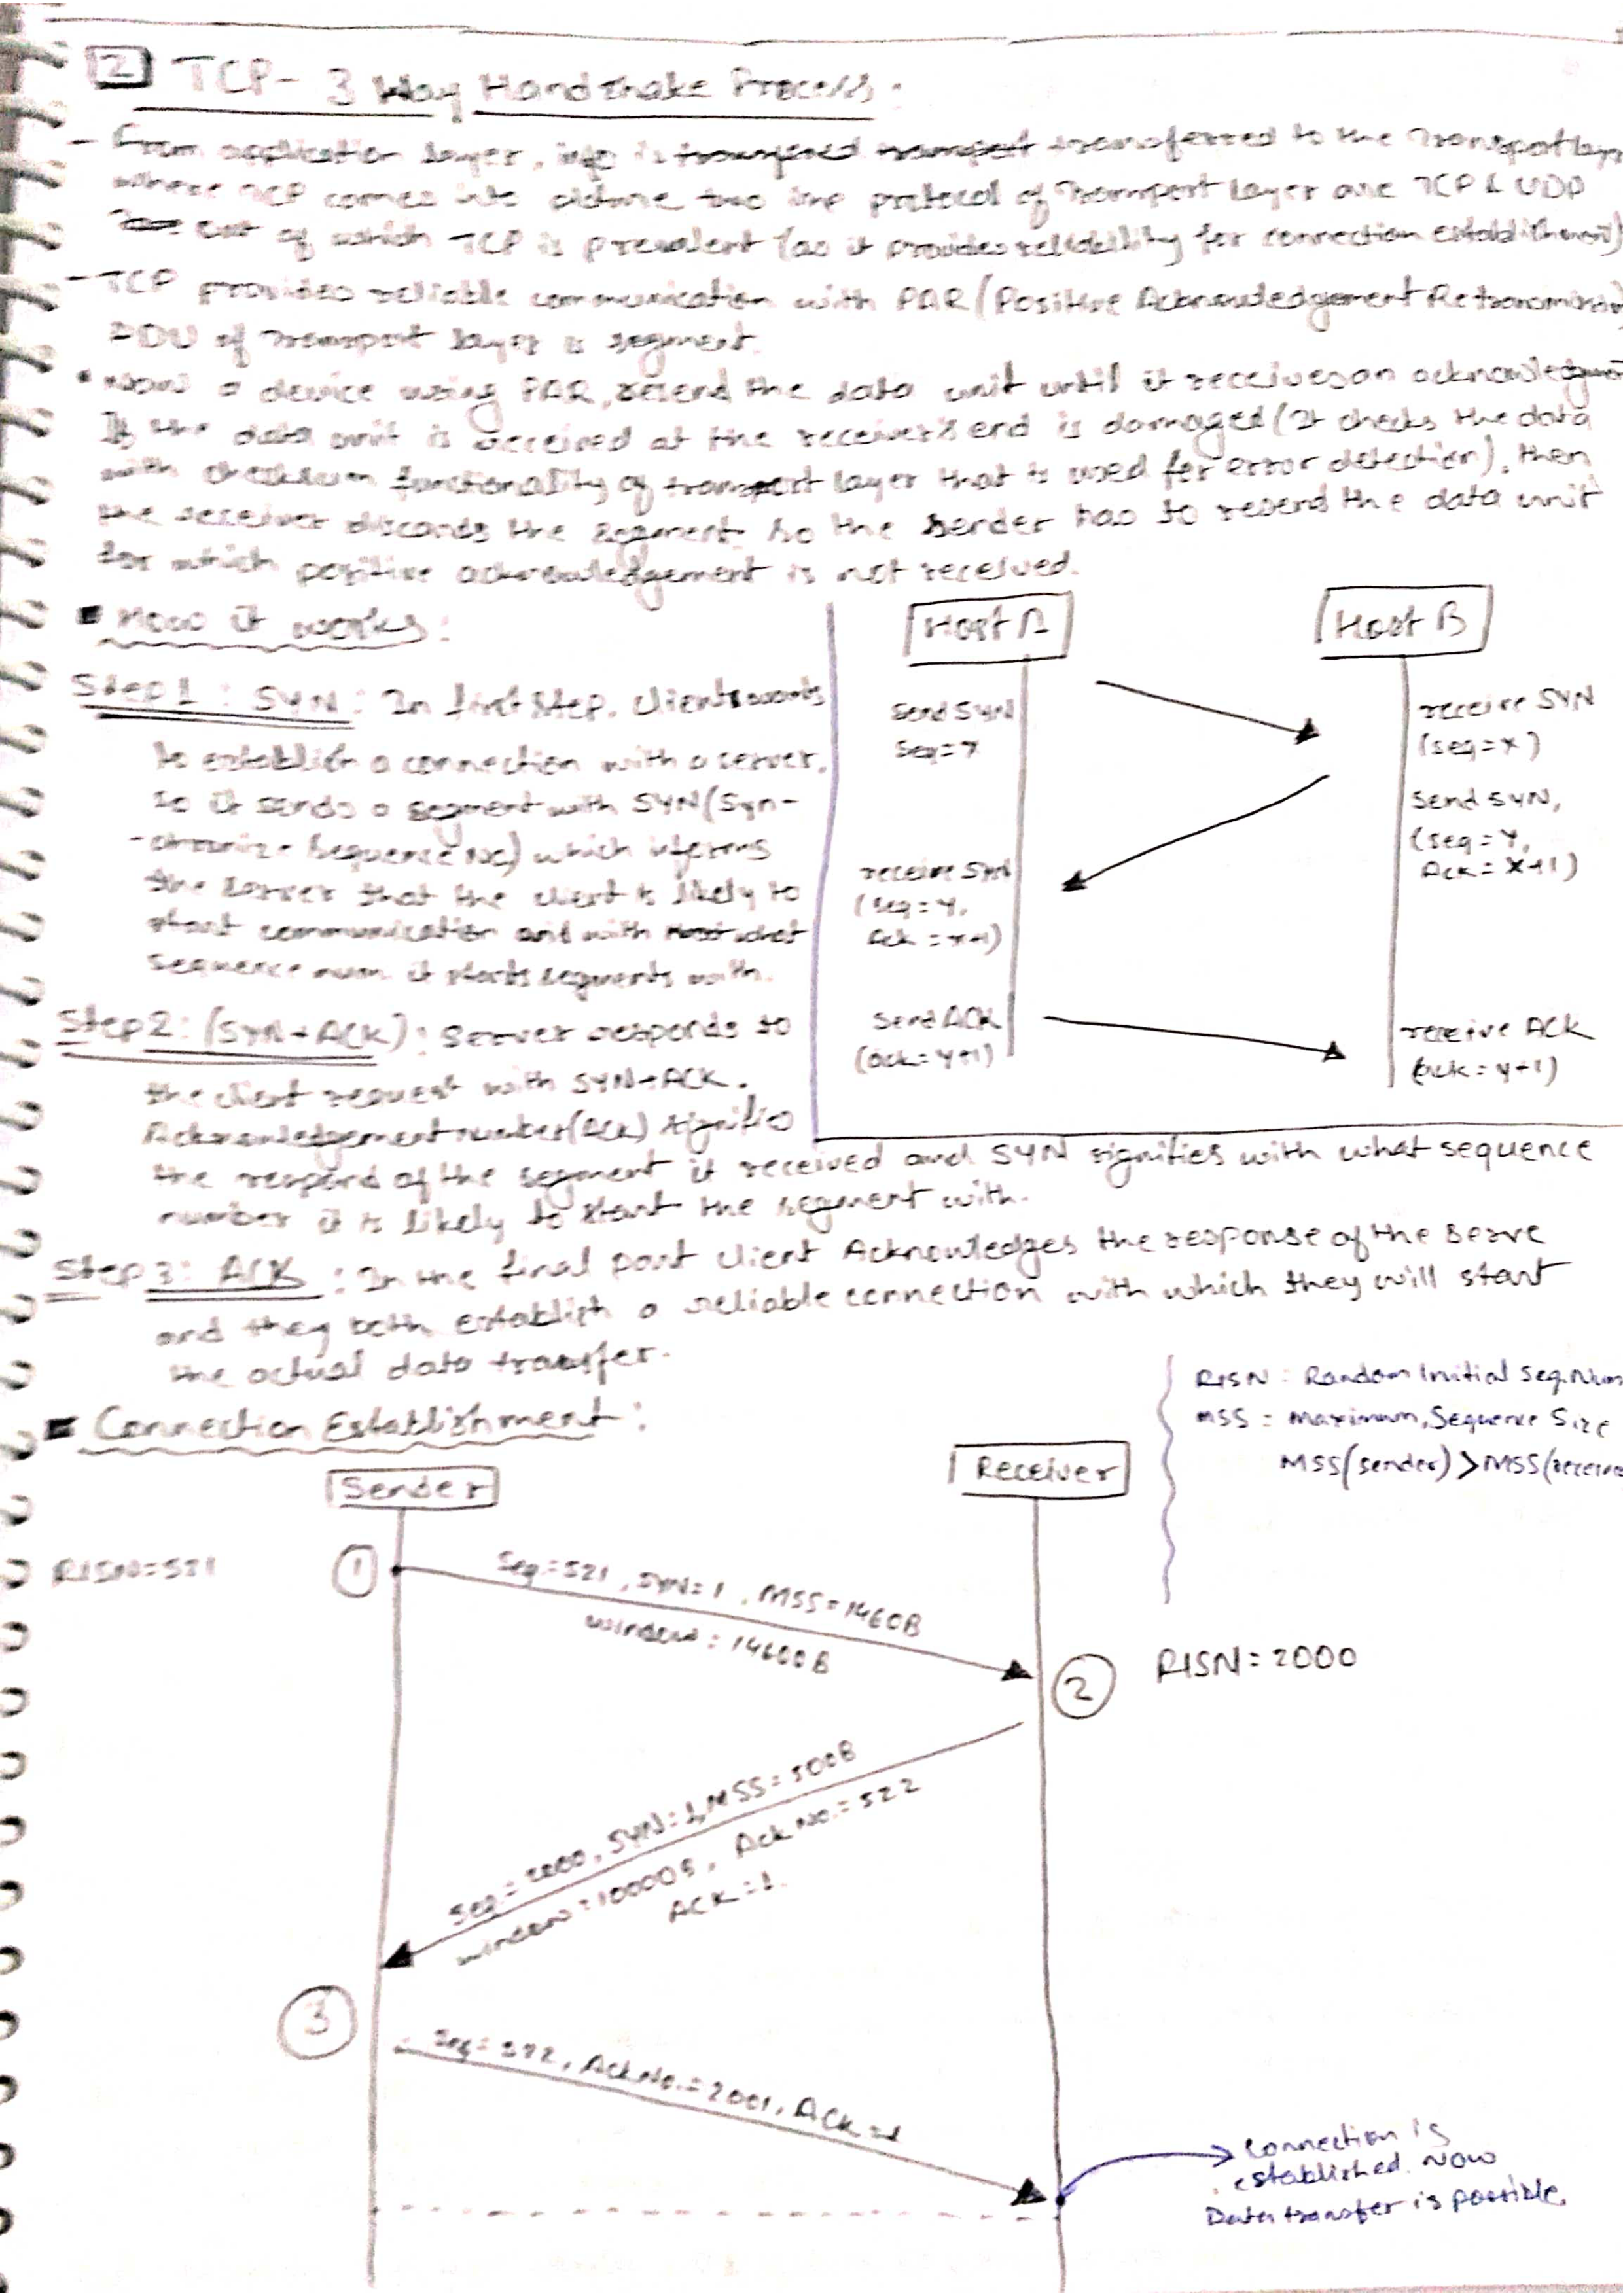 2 TCP- 3 Way Handshake Process:
- From application layer, info is transferred to the Transport layer
where TCP comes into picture two imp protocol of Transport Layer are TCP & UDP
out of which TCP is prevalent (as it provides reliability for connection establishment)
- TCP provides reliable communication with PAR (Positive Acknowledgement Retransmission)
PDU of Transport layer is segment.
• Now a device using PAR, resend the data unit until it receives an acknowledgment
If the data unit is received at the receiver's end is damaged (It checks the data
with checksum functionality of transport layer that is used for error detection), then
the receiver discards the segment. So the sender has to resend the data unit
for which positive acknowledgement is not received.
■ How it works:
Step 1: SYN: In first step, client wants
to establish a connection with a server,
so it sends a segment with SYN (Syn-
-chronize Sequence No) which informs
the server that the client is likely to
start communication and with what
sequence num it starts segments with.
Host A
Host B
Send SYN
Seq=x
receive SYN
(seq=x)
Send SYN,
(seq=Y,
Ack=X+1)
receive SYN
(seq=Y,
Ack=x+1)
Send ACK
(ack=Y+1)
receive ACK
(ack=y+1)
Step 2: (SYN+ACK): Server responds to
the client request with SYN+ACK.
Acknowledgement number (Ack) signifies
the respond of the segment it received and SYN signifies with what sequence
number it is likely to start the segment with.
Step 3: ACK: In the final part client Acknowledges the response of the Serve
and they both establish a reliable connection with which they will start
the actual data transfer.
RISN: Random Initial Seq. Num
MSS = Maximum, Sequence Size
MSS(sender) > MSS(receive
■ Connection Establishment:
Sender
Receiver
RISN=521
1
Seq=521, SYN=1, MSS=1460B
window=14600B
2
RISN=2000
Seq=2000, SYN=1, MSS=500B
window=10000B, Ack No.=522
ACK=1.
3
Seq=522, AckNo.=2001, ACK=1
Connection is
established. Now
Data transfer is possible.